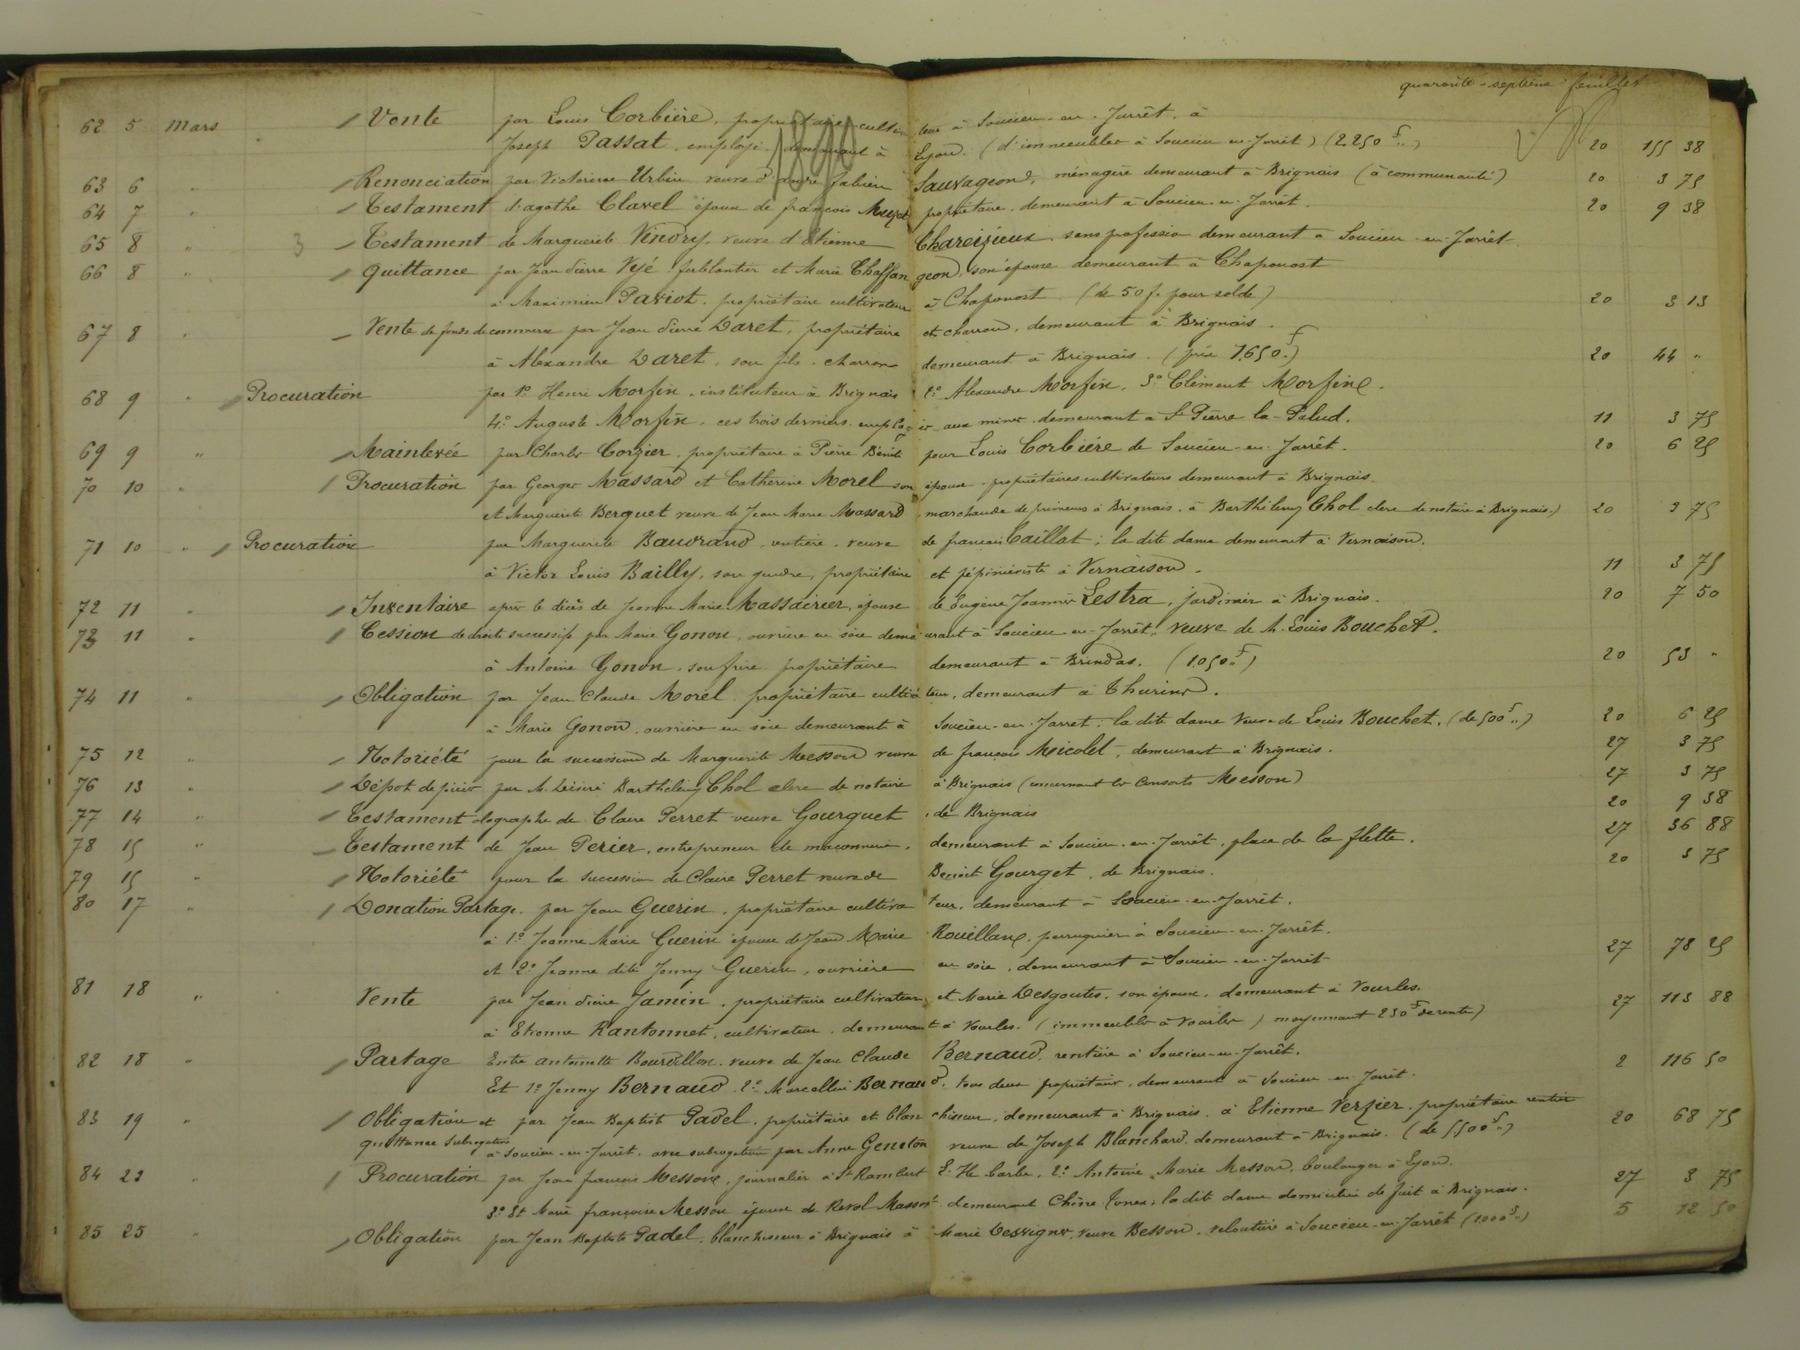 quarante-septième feuillet
1890
62 5 Mars / Vente par Louis Corbière, propriétaire cultivateur à Soucieu-en-Jarrêt, à
Joseph Passat, employé, demeurant à Lyon. (d'immeubles à Soucieu en-Jarrêt) (2250 f..) 20 155 38
63 6 " / Renonciation par Victorine Urbin veuve d' fabien Sauvageon, ménagère demeurant à Brignais (à communauté) 20 3 75
64 7 " / Testament d'agathe Clavel épouse de françois propriétaire, demeurant à Soucieu-en-Jarrêt. 20 9 38
65 8 " 3 / Testament de Marguerite Vindry, veuve d'Etienne Chareizieux, sans profession demeurant à Soucieu-en-Jarrêt
66 8 " / Quittance par Jean Pierre Vejé ferblantier et Marie Chaffangeon, son épouse demeurant à Chaponost
à Maximien Paviot, propriétaire cultivateur à Chaponost (de 50 f. pour solde) 20 3 13
67 8 " / Vente de fonds de commerce par Jean Pierre Daret, propriétaire et charron, demeurant à Brignais.
à Alexandre Daret, son fils, charron demeurant à Brignais. (prix 1.650 f.) 20 44 "
68 9 " / Procuration par 1º Henri Morfin, instituteur à Brignais 2º Alexandre Morfin, 3º Clément Morfin.
4º Auguste Morfin, ces trois derniers employés aux mines demeurant à St Pierre la-Palud. 11 3 75
69 9 " / Mainlevée par Charles Corzier, propriétaire à Pierre Bénite pour Louis Corbière de Soucieu-en-Jarrêt. 20 6 25
70 10 " / Procuration par Georges Massard et Catherine Morel son épouse propriétaires cultivateurs demeurant à Brignais.
et Marguerite Berquet veuve de Jean Marie Massard marchande de primeurs à Brignais, à Barthélemy Chol clerc de notaire à Brignais) 20 3 75
71 10 " / Procuration par Marguerite Baudrand, rentière, veuve de francois Caillat; la dite dame demeurant à Vernaison.
à Victor Louis Bailly, son gendre, propriétaire et pépiniériste à Vernaison. 11 3 75
72 11 " / Inventaire après le décès de Jeanne Marie Massacrier, épouse de Eugène Joannès Lestra, jardinier à Brignais. 20 7 50
73 11 " / Cession de droits successifs par Marie Gonon, ouvrière en soie demeurant à Soucieu-en-Jarrêt, veuve de M. Louis Bouchet.
à Antoine Gonon, son frère propriétaire demeurant à Brindas. (1.050 f) 20 53 "
74 11 " / Obligation par Jean Claude Morel, propriétaire cultivateur, demeurant à Thurins.
à Marie Gonon, ouvrière en soie demeurant à Soucieu-en-Jarret; la dite dame veuve de Louis Bouchet. (de 500 f..) 20 6 25
75 12 " / Notoriété pour la succession de Marguerite Messon veuve de françois Micolet, demeurant à Brignais. 27 3 75
76 13 " / Dépot de pièces par M. Désiré Barthélemy Chol clerc de notaire à Brignais (concernant les Consorts Messon) 27 3 75
77 14 " / Testament olographe de Claire Perret veuve Gourguet, de Brignais 20 9 38
78 15 " / Testament de Jean Perier, entrepreneur de maçonnerie, demeurant à Soucieu-en-Jarrêt, place de la flette. 27 36 88
79 15 " / Notoriété pour la succession de Claire Perret veuve de Benoit Gourget, de Brignais. 20 3 75
80 17 " / Donation Partage, par Jean Guerin, propriétaire cultivateur, demeurant à Soucieu-en-Jarrêt.
à 1º Jeanne Marie Guerin épouse de Jean Marie Rouilland, perruquier à Soucieu-en-Jarrêt.
et 2º Jeanne dite Jenny Guerin, ouvrière en soie, demeurant à Soucieu-en-Jarrêt 27 78 25
81 18 " Vente par Jean Pierre Jamin, propriétaire cultivateur, et Marie Desgoutes, son épouse, demeurant à Vourles.
à Etienne Rantonnet, cultivateur, demeurant à Vourles. (immeubles à Vourles) moyennant 250 f de rente) 27 113 88
82 18 " / Partage Entre Antoinette Bourdillon, veuve de Jean Claude Bernaud, rentière à Soucieu-en-Jarrêt.
Et 1º Jenny Bernaud 2º Marcellin Bernaud, tous deux propriétaires, demeurant à Soucieu-en-Jarrêt. 2 116 50
83 19 " / Obligation et par Jean Baptiste Padel, propriétaire et blanchisseur, demeurant à Brignais, à Etienne Verzier, propriétaire rentier
quittance subrogative à Soucieu-en-Jarrêt, avec subrogation par Anne Geneton veuve de Joseph Blanchard, demeurant à Brignais. (de 5500 f..) 20 68 75
84 23 " / Procuration par Jean françois Messon, journalier à St Rambert L'Ile barbe, 2º Antoine Marie Messon, boulanger à Lyon.
3º Et Marie françoise Messon épouse de Revol Masson demeurant Chêne la dite dame domiciliée de fait à Brignais. 27 3 75
85 25 " / Obligation par Jean Baptiste Padel, blanchisseur à Brignais à Marie Desvignes, veuve Besson, veloutière à Soucieu-en-Jarrêt (1000 f..) 5 12 50